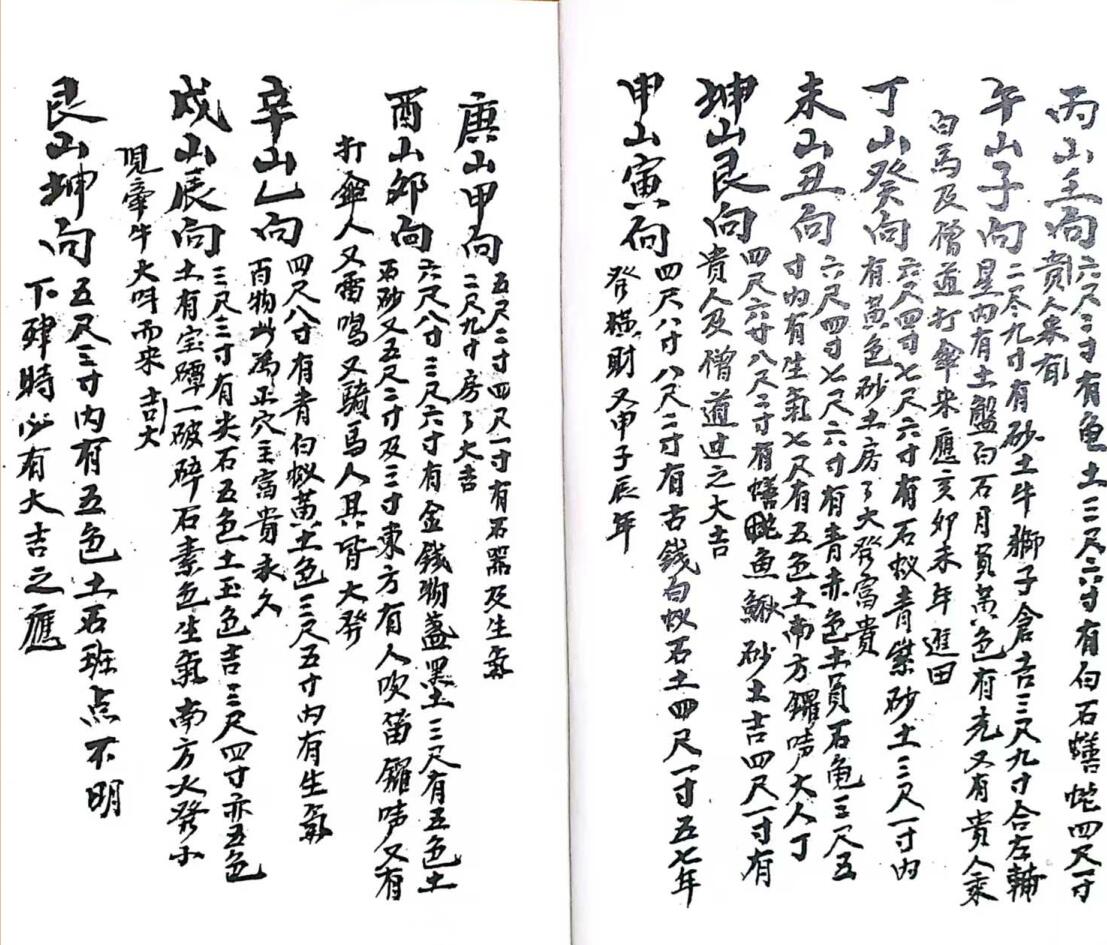 丙山壬向
六尺三寸有龟土三尺六寸有白石蟮蛇四尺一寸
貴人来有
午山子向
二尺九寸有砂土牛獅子倉吉三尺九寸合左輔
星内有土盤白石月員黄色有光又有貴人乘
白馬及僧道打傘来應亥卯未年進田
丁山癸向
六尺四寸七尺六寸有石蚁青紫砂土三尺一寸内
有黄色砂土房了大發富貴
未山丑向
六尺四寸七尺六寸有青赤色土員石龟三尺五
寸内有生氣七尺有五色土南方鑼声大人丁
坤山艮向
四尺六寸八尺二寸有蟮魚鰍砂土吉四尺一寸有
貴人及僧道过之大吉
申山寅向
四尺八寸八尺二寸有古錢白蚁石土四尺一寸五七年
發横財又申子辰年
庚山甲向
五尺二寸四尺一寸有石器及生氣
二尺九寸房了大吉
酉山卯向
六尺八寸三尺六寸有金錢物盏黑土三尺有五色土
石砂又五尺二寸及三寸東方有人吹笛鑼声又有
打傘人又雷鳴又騎馬人具皆大發
辛山乙向
四尺八寸有青白蚁黄土色三尺五寸内有生氣
百物此為正穴主富貴永久
戍山辰向
三尺三寸有尖石五色土玉色吉三尺四寸亦五色
土有宝磹一破碎石素色生氣南方火發小
児牵牛大呌而来吉大
艮山坤向
五尺三寸内有五色土石班点不明
下肂時必有大吉之應